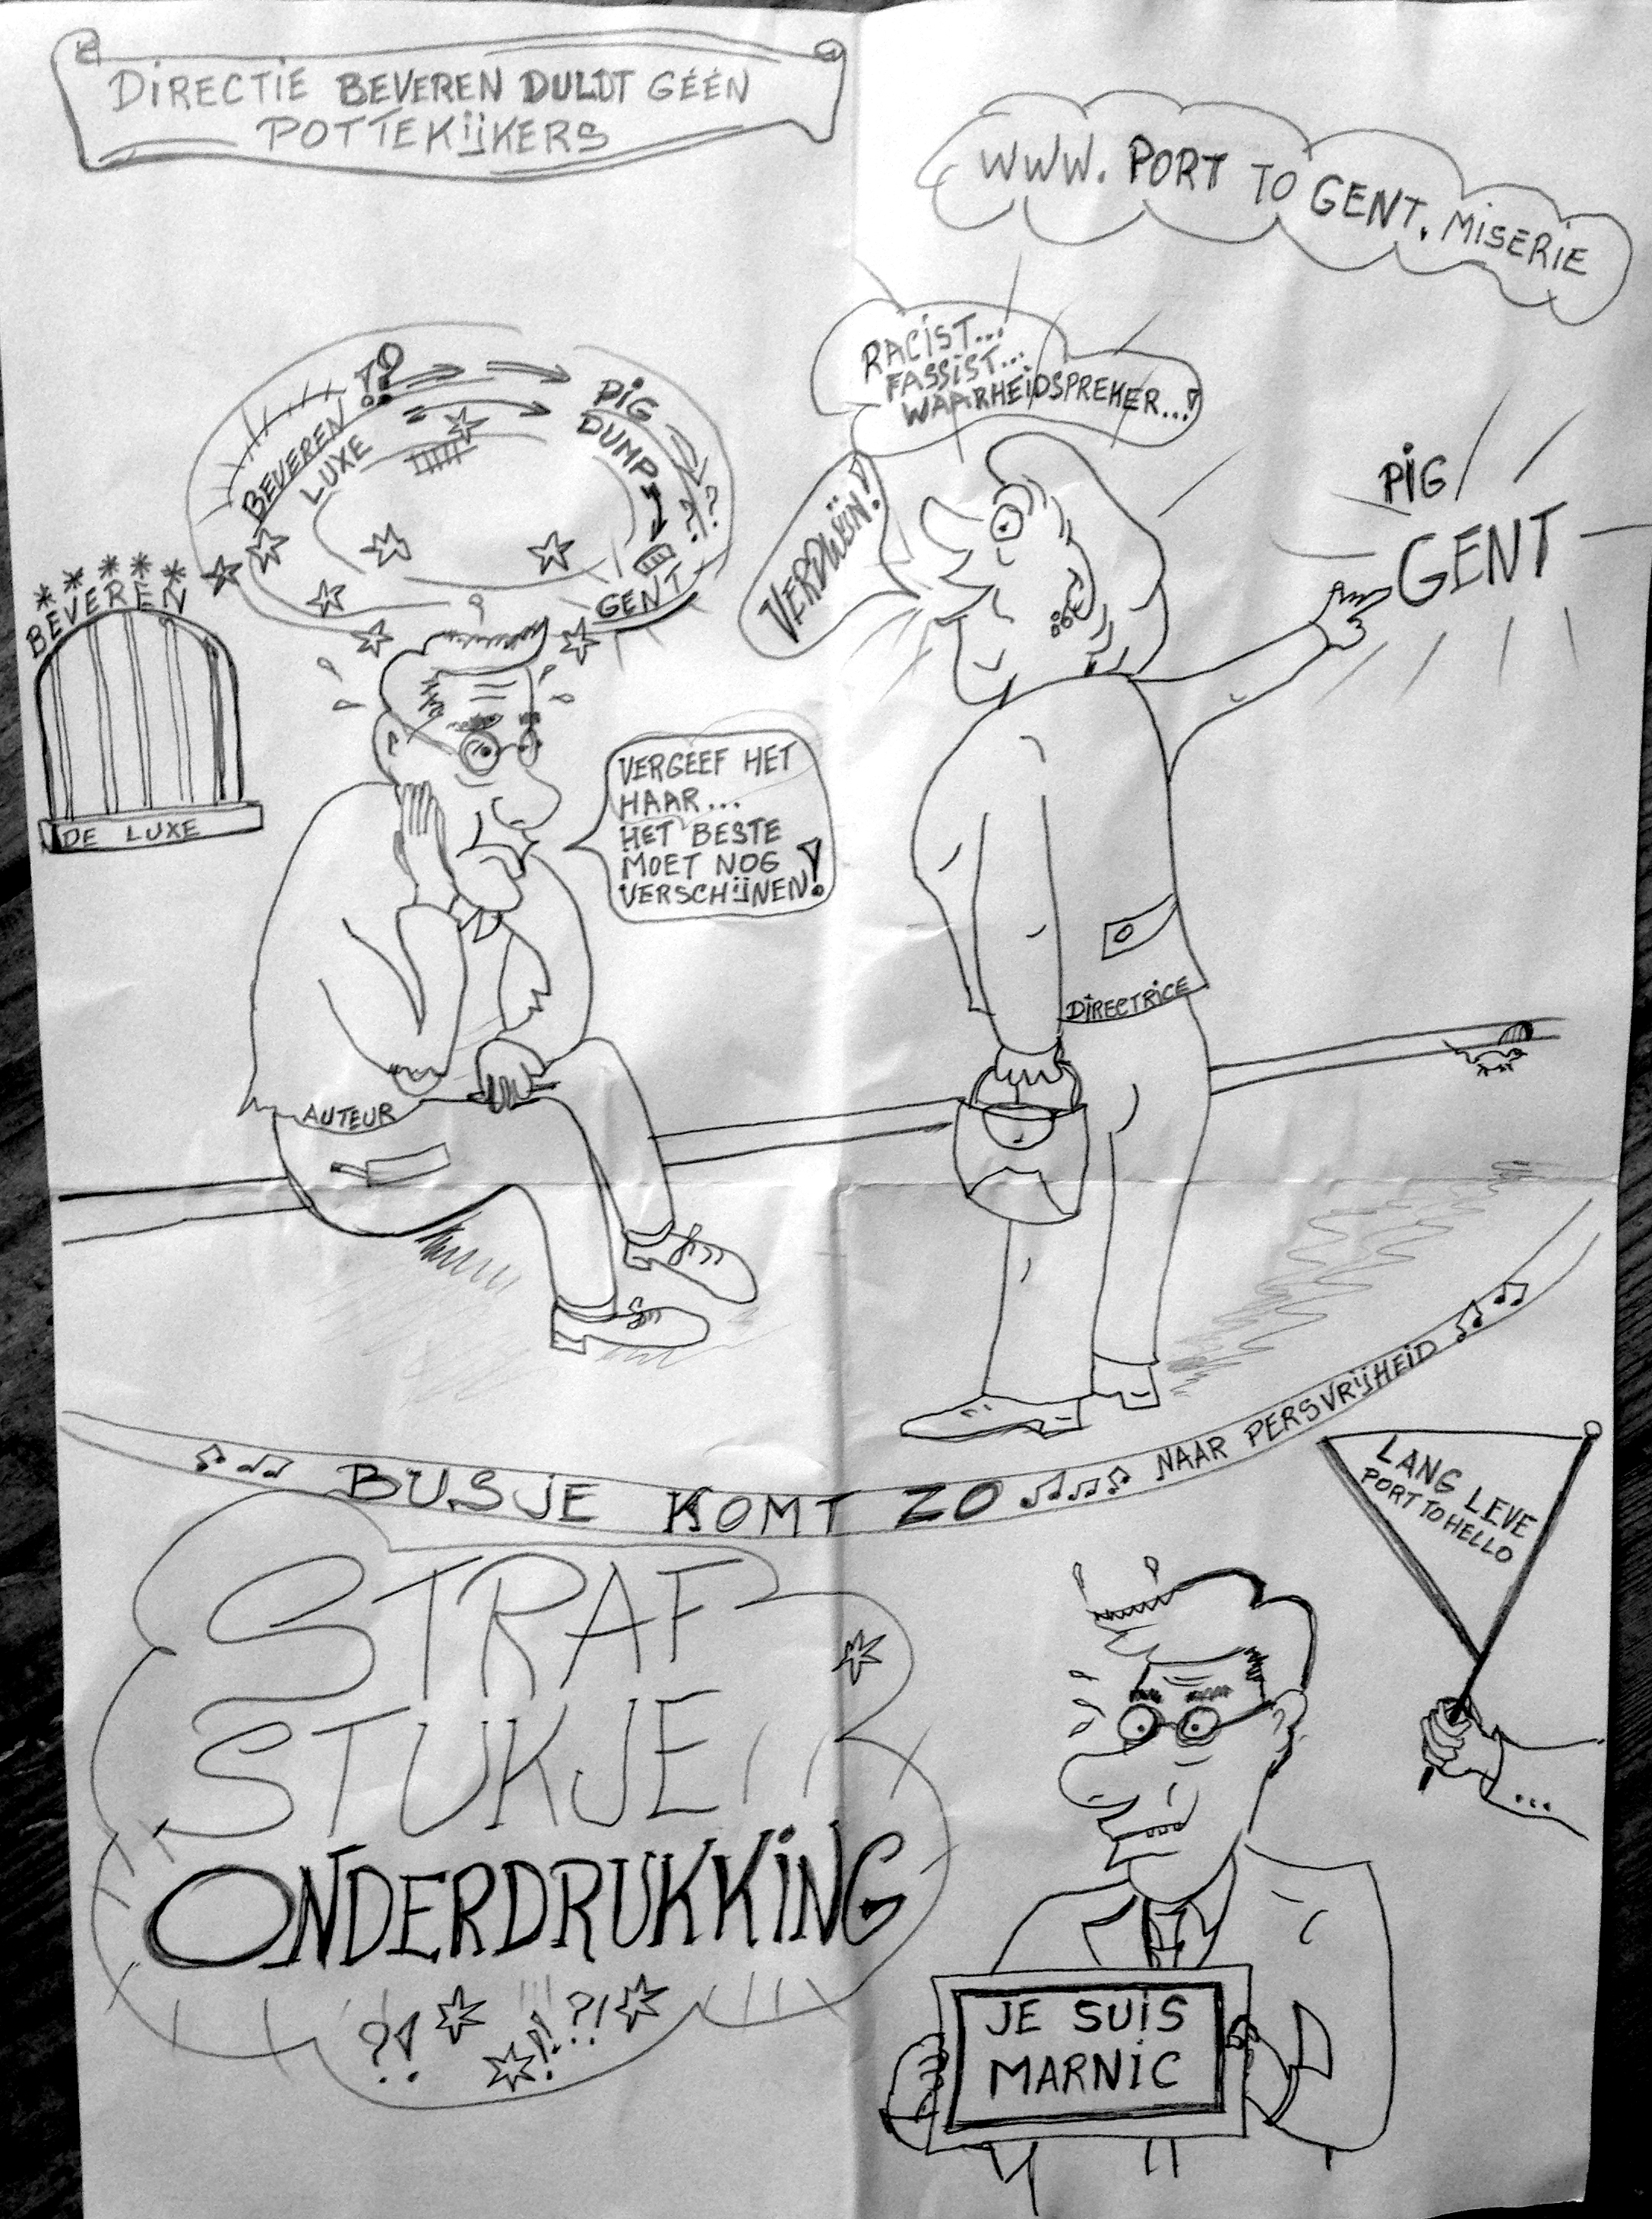 DIRECTIE BEVEREN DULDT GÉÉN
POTTEKIJKERS
WWW. PORT TO GENT. MISERIE
RACIST...
FASSIST...
WAARHEIDSPREKER...!
VERDWIJN!
PIG
GENT
BEVEREN !?
LUXE
PIG
DUMP
?!?
GENT
BEVEREN
DE LUXE
VERGEEF HET
HAAR...
HET BESTE
MOET NOG
VERSCHIJNEN!
AUTEUR
DIRECTRICE
BUSJE KOMT ZO NAAR PERSVRIJHEID
LANG LEVE
PORT TO HELLO
STRAF
STUKJE
ONDERDRUKKING
?! !! ?!
JE SUIS
MARNIC